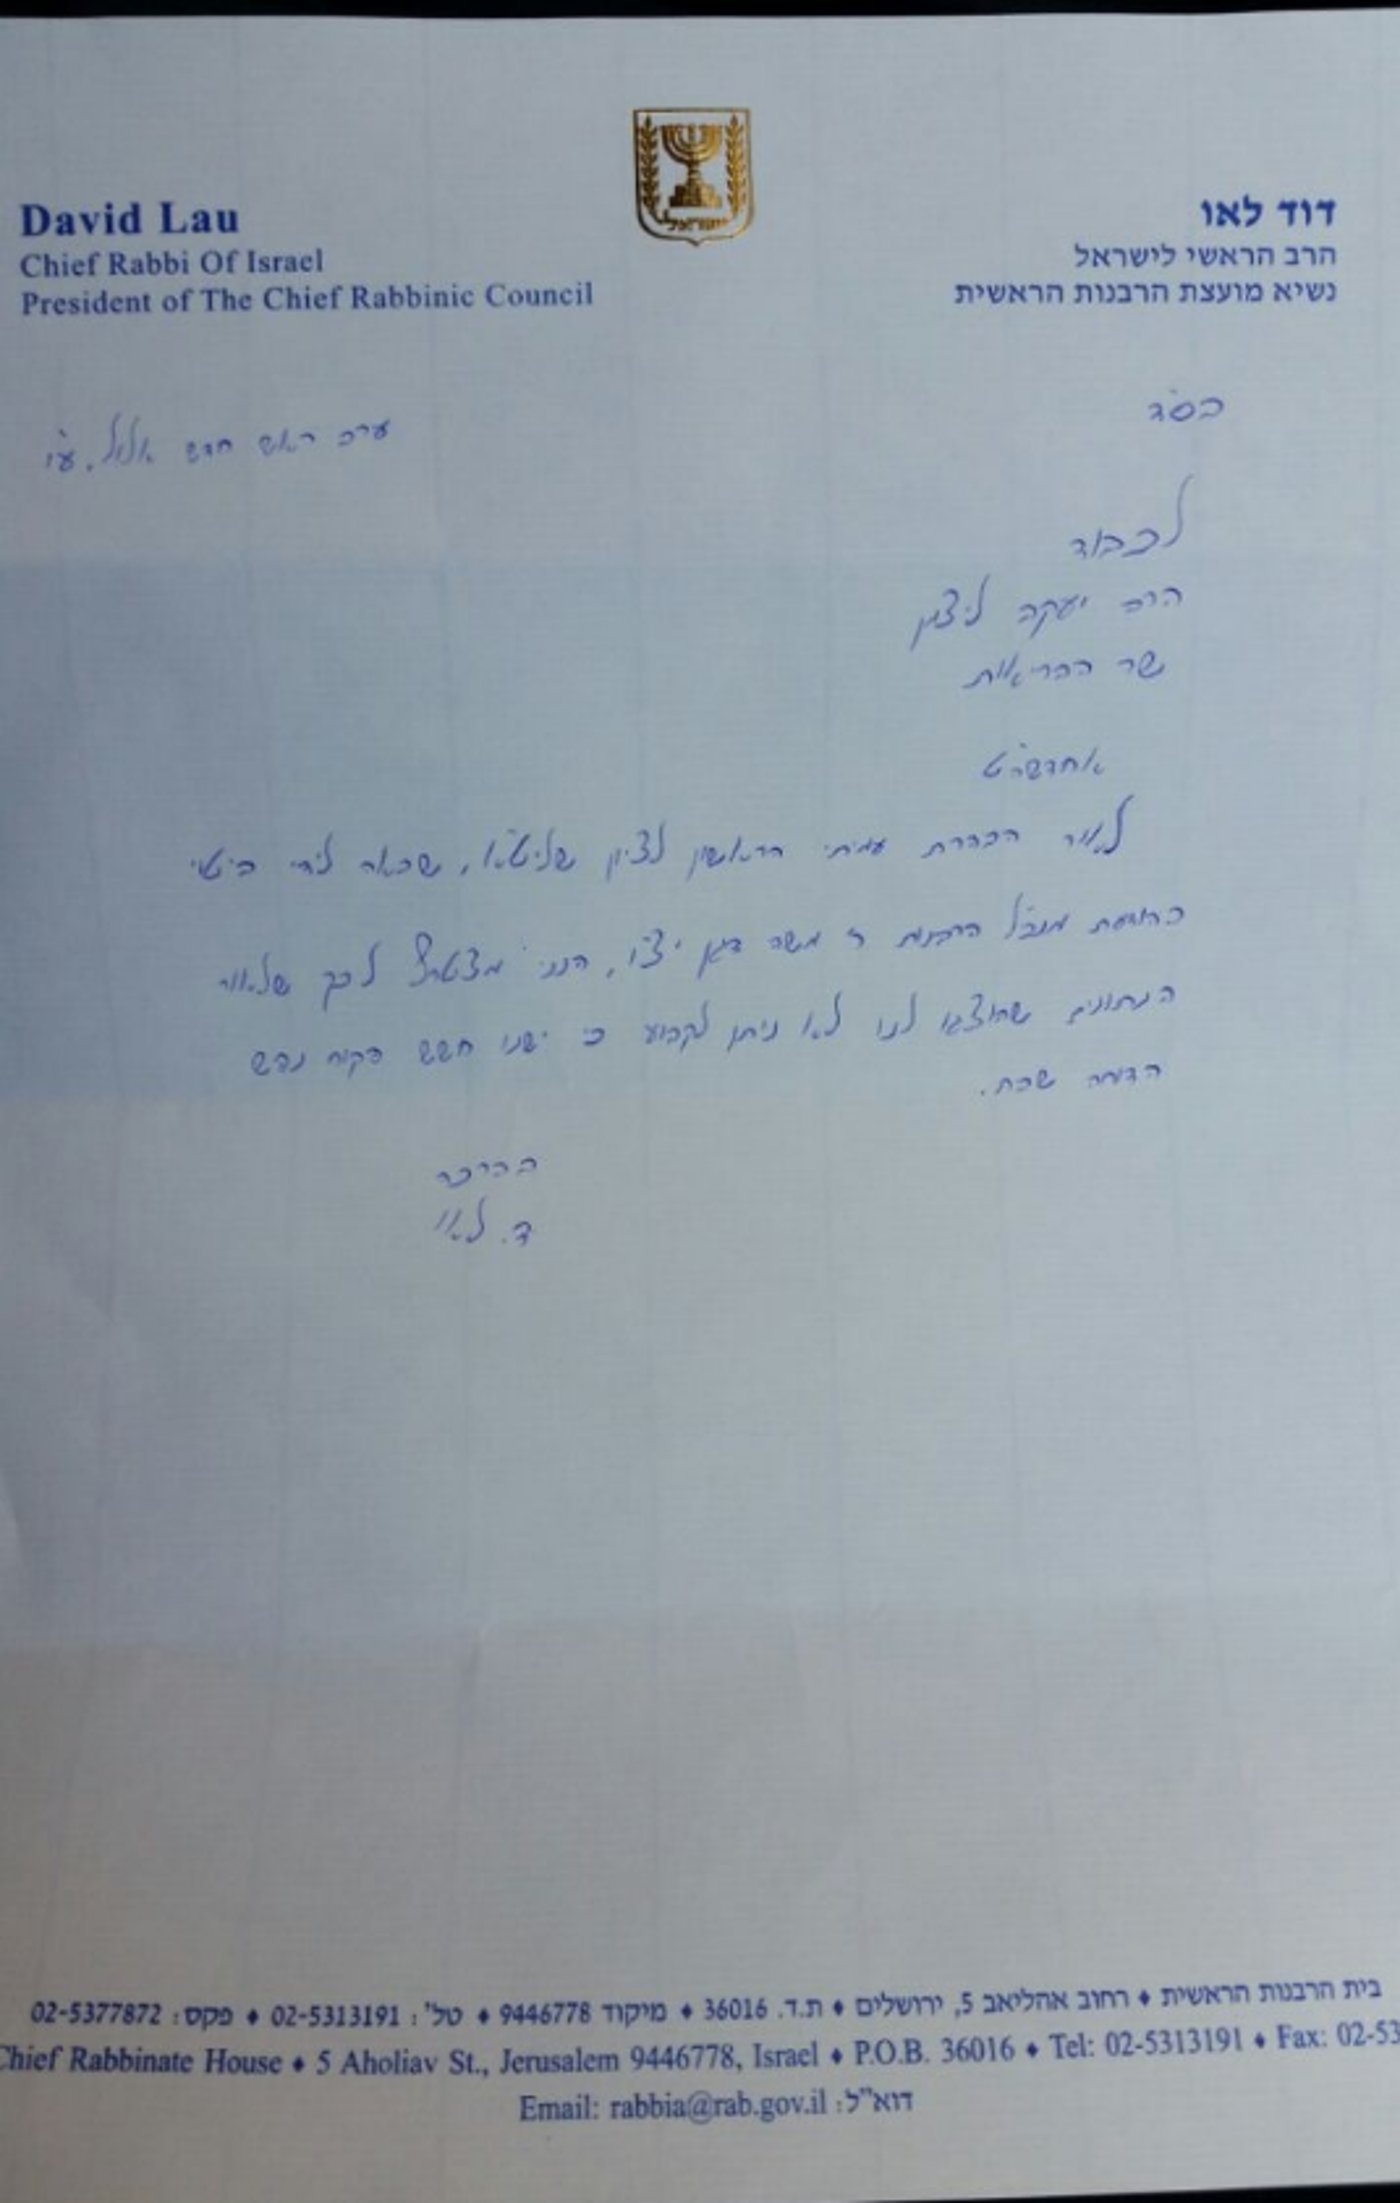 ישראל
David Lau
Chief Rabbi Of Israel
President of The Chief Rabbinic Council
דוד לאו
הרב הראשי לישראל
נשיא מועצת הרבנות הראשית
בס"ד
ערב ראש חדש אלול, ע"ו
לכבוד
הרב יעקב ליצמן
שר הבריאות
אחדשה"ט
לאור הכרזת עמיתי הראשון לציון שליט"א, שבאה לידי ביטוי
מנכ"ל הרבנות ר' משה דגן יצ"ו, הנני מצטרף לכך שלאור
הנתונים שהוצגו לנו לא ניתן לקבוע כי ישנו חשש פקוח נפש
הדוחה שבת.
בברכה
ד. לאו
בית הרבנות הראשית ♦ רחוב אהליאב 5, ירושלים ♦ ת.ד. 36016 ♦ מיקוד 9446778 ♦ טל': 02-5313191 ♦ פקס: 02-5377872
Chief Rabbinate House ♦ 5 Aholiav St., Jerusalem 9446778, Israel ♦ P.O.B. 36016 ♦ Tel: 02-5313191 ♦ Fax: 02-53
Email: rabbia@rab.gov.il :דוא"ל